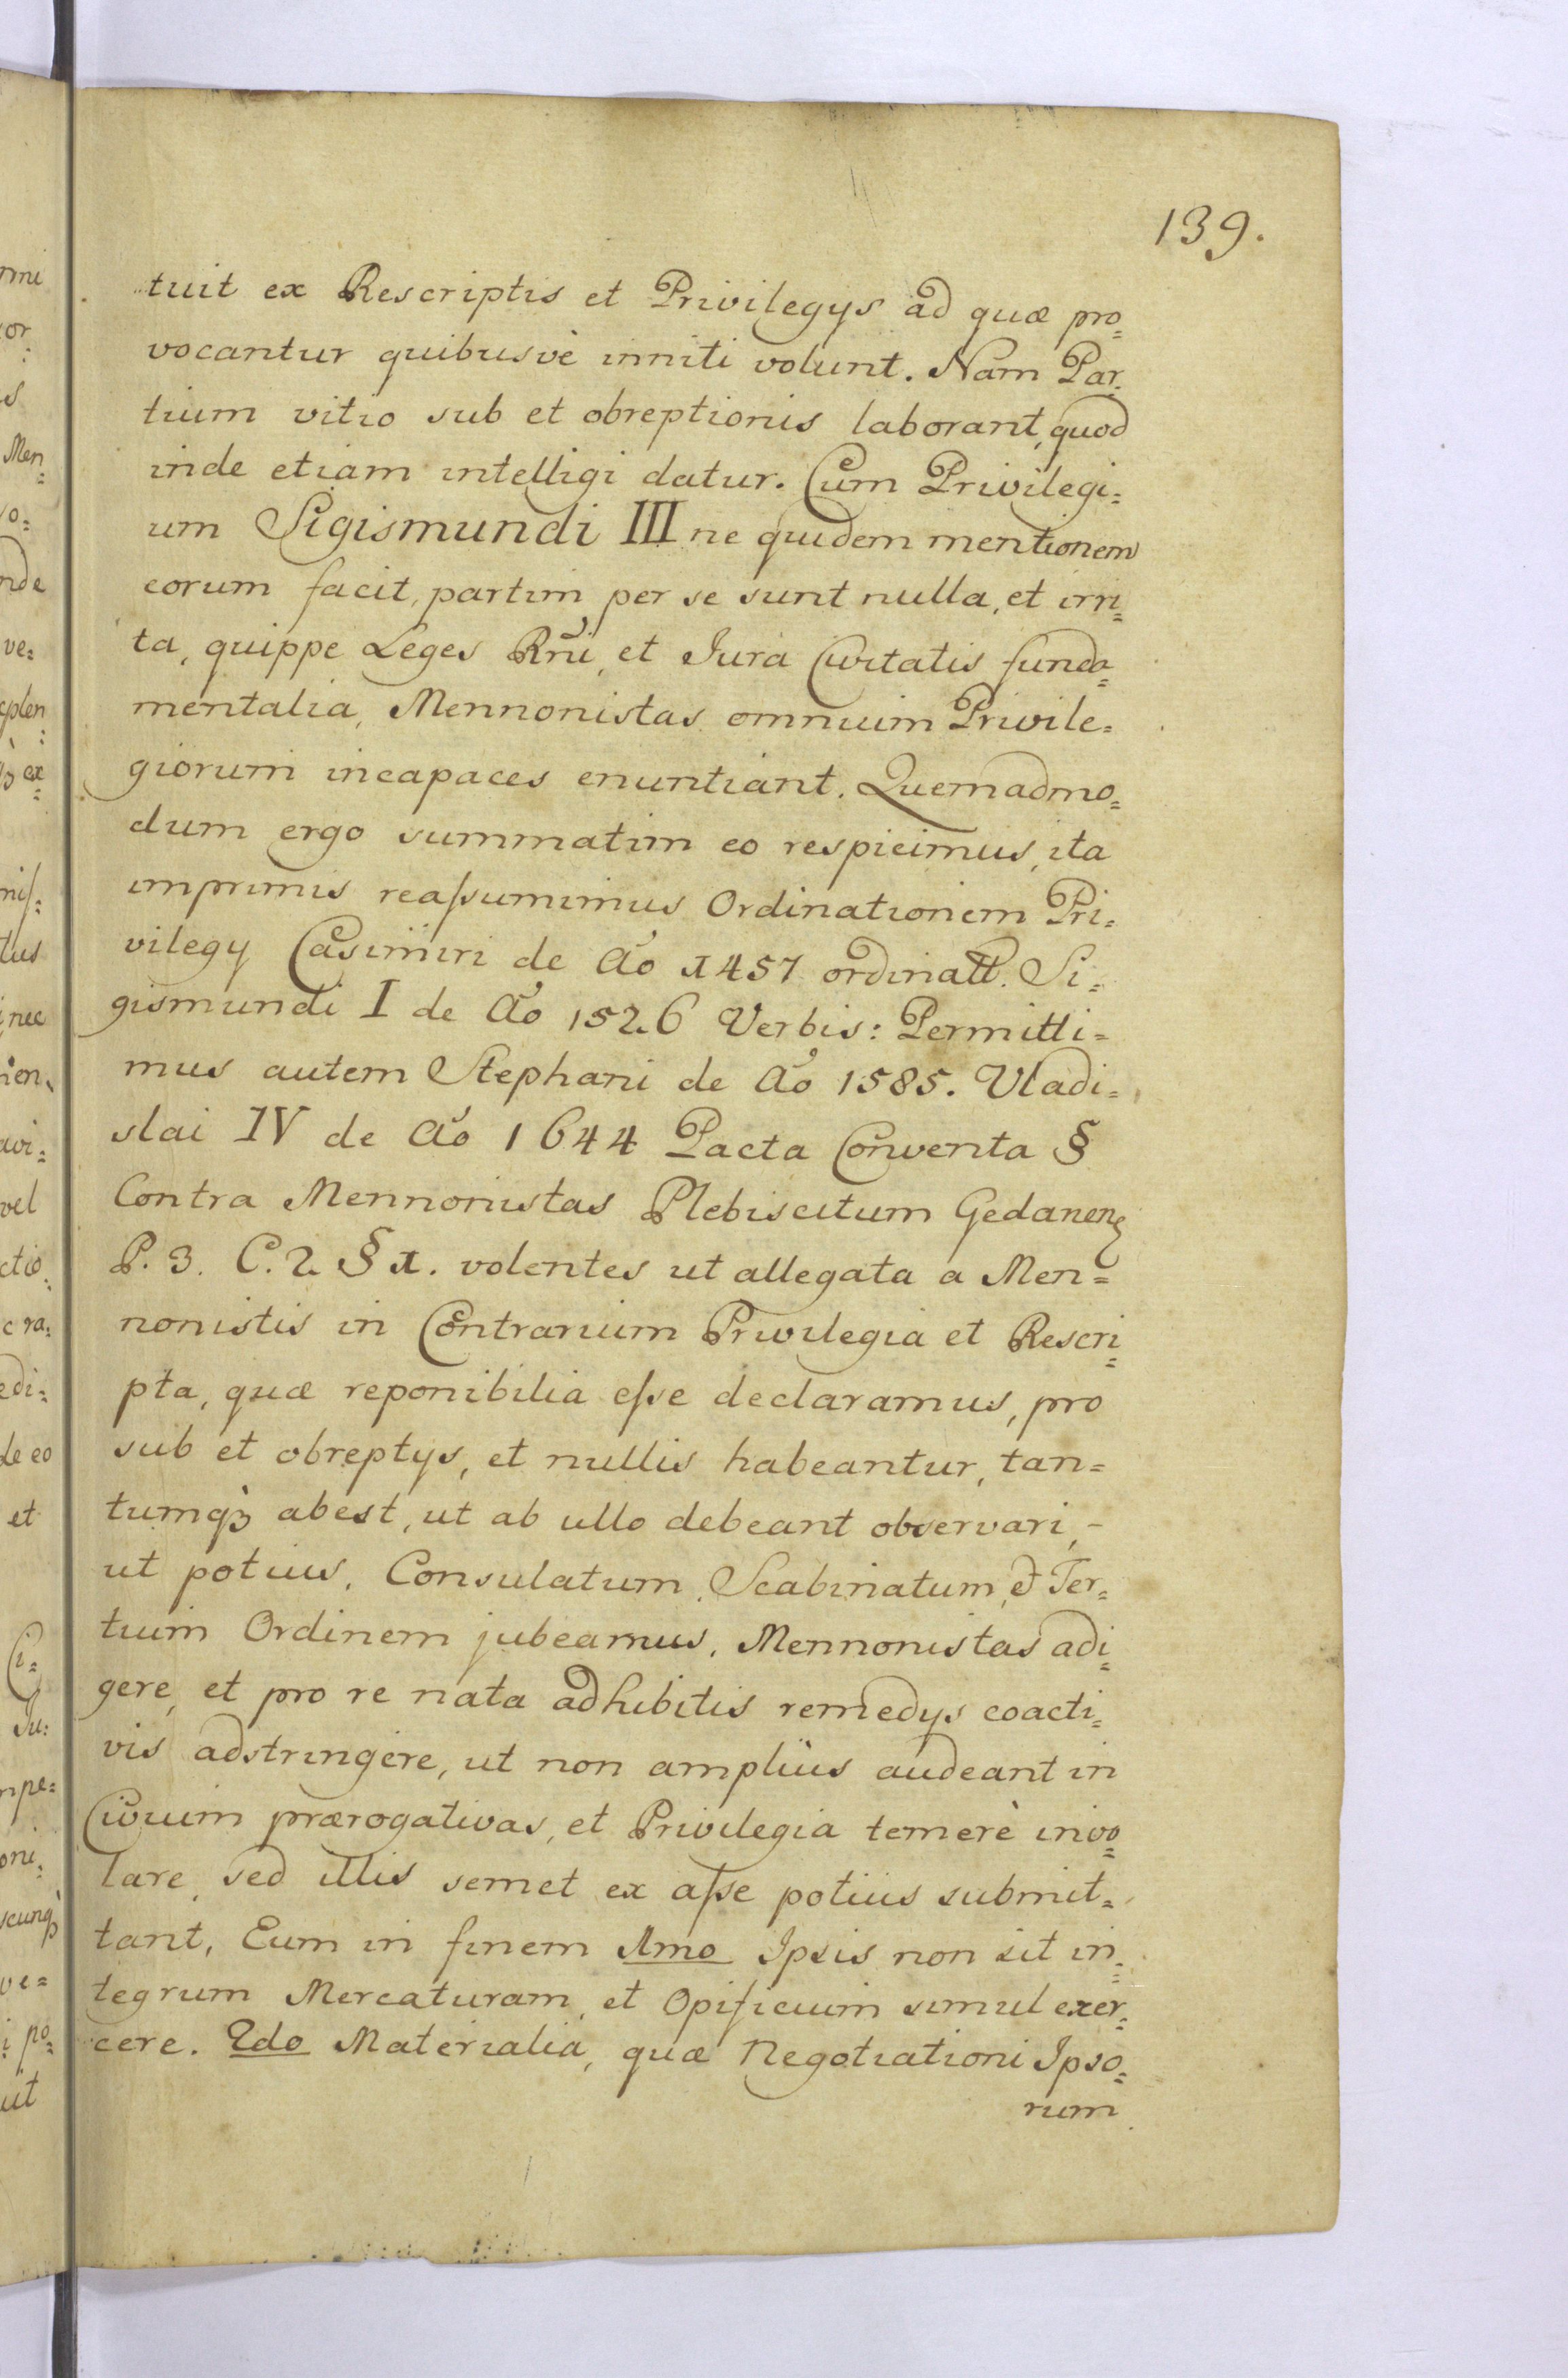 139.
tuit ex Rescriptis et Privilegys ad quæ pro=
vocantur quibusvè inniti volunt. Nam Par=
tium vitio sub et obreptionis laborant, quod
inde etiam intelligi datur. Cum Privilegi=
um Sigismundi III ne quidem mentionem
eorum facit, partim per se sunt nulla, et irri=
ta, quippe Leges Rñi, et Jura Civitatis funda=
mentalia, Mennonistas omnium Privile=
giorum incapaces enuntiant. Quemadmo=
dum ergo summatim eo respicimus, ita
imprimis reaſsumimus Ordinationem Pri=
vilegy Casimiri de Aõ 1457 ordinatt. Si=
gismundi I de Aõ 1526 Verbis: Permitti=
mus autem Stephani de Aõ 1585. Vladi=
slai IV de Aõ 1644 Pacta Conventa §
Contra Mennonistas Plebiscitum Gedanenς
P. 3. C. 2 § 1. volentes ut allegata a Men=
nonistis in Contrarium Privilegia et Rescri=
pta, quæ reponibilia eſse declaramus, pro
sub et obreptys, et nullis habeantur, tan=
tumqȝ abest, ut ab ullo debeant observari, -
ut potius, Consulatum, Scabinatum, et Ter=
tium Ordinem jubeamus, Mennonistas adi=
gere, et pro re nata adhibitis remedys coacti=
vis adstringere, ut non ampliùs audeant in
Civium prærogativas, et Privilegia temerè invo=
lare, sed illis semet ex aſse potius submit=
tant, Eum in finem 1mo Ipsis non sit in=
tegrum Mercaturam, et Opificium simul exer=
cere. 2do Materialia, quæ Negotiationi Ipso=
rum